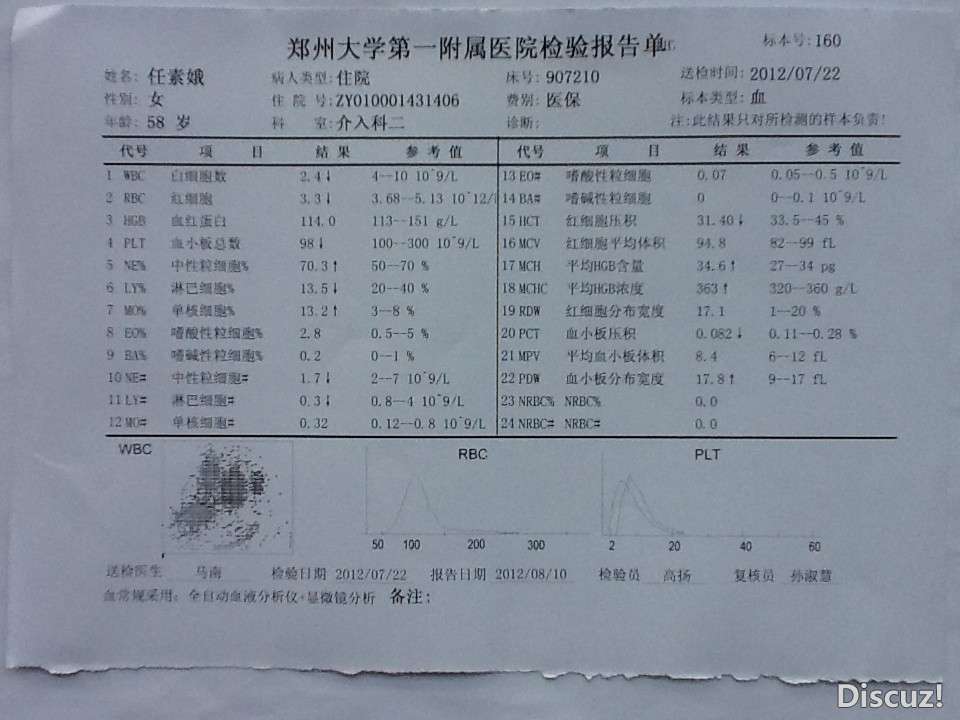 郑州大学第一附属医院检验报告单 标本号:160
姓名: 任素娥 病人类型:住院 床号: 907210 送检时间: 2012/07/22
性别: 女 住 院 号:ZY010001431406 费别: 医保 标本类型: 血
年龄: 58 岁 科 室:介入科二 诊断: 注:此结果只对所检测的样本负责!
代号 项 目 结 果 参 考 值 代号 项 目 结 果 参 考 值
1 WBC 白细胞数 2.4↓ 4--10 10^9/L 13 EO# 嗜酸性粒细胞 0.07 0.05--0.5 10^9/L
2 RBC 红细胞 3.3↓ 3.68--5.13 10^12/ 14 BA# 嗜碱性粒细胞 0 0--0.1 10^9/L
3 HGB 血红蛋白 114.0 113--151 g/L 15 HCT 红细胞压积 31.40↓ 33.5--45 %
4 PLT 血小板总数 98↓ 100--300 10^9/L 16 MCV 红细胞平均体积 94.8 82--99 fL
5 NE% 中性粒细胞% 70.3↑ 50--70 % 17 MCH 平均HGB含量 34.6↑ 27--34 pg
6 LY% 淋巴细胞% 13.5↓ 20--40 % 18 MCHC 平均HGB浓度 363↑ 320--360 g/L
7 MO% 单核细胞% 13.2↑ 3--8 % 19 RDW 红细胞分布宽度 17.1 1--20 %
8 EO% 嗜酸性粒细胞% 2.8 0.5--5 % 20 PCT 血小板压积 0.082↓ 0.11--0.28 %
9 BA% 嗜碱性粒细胞% 0.2 0--1 % 21 MPV 平均血小板体积 8.4 6--12 fL
10 NE# 中性粒细胞# 1.7↓ 2--7 10^9/L 22 PDW 血小板分布宽度 17.8↑ 9--17 fL
11 LY# 淋巴细胞# 0.3↓ 0.8--4 10^9/L 23 NRBC% NRBC% 0.0
12 MO# 单核细胞# 0.32 0.12--0.8 10^9/L 24 NRBC# NRBC# 0.0
WBC RBC PLT
50 100 200 300 2 20 40 60
送检医生 马南 检验日期 2012/07/22 报告日期 2012/08/10 检验员 高扬 复核员 孙淑慧
血常规采用: 全自动血液分析仪+显微镜分析 备注:
Discuz!